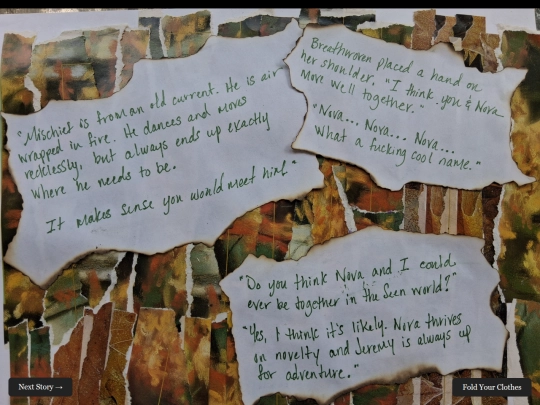 "Mischief is from an old current. He is air
wrapped in fire. He dances and moves
recklessly, but always ends up exactly
where he needs to be.
It makes sense you would meet him."
Breathwoven placed a hand on
her shoulder. "I think you & Nova
move well together."
"Nova... Nova... Nova...
what a fucking cool name."
"Do you think Nova and I could
ever be together in the Seen world?"
"Yes, I think it's likely. Nova thrives
on novelty and Jeremy is always up
for adventure."
Next Story →
Fold Your Clothes